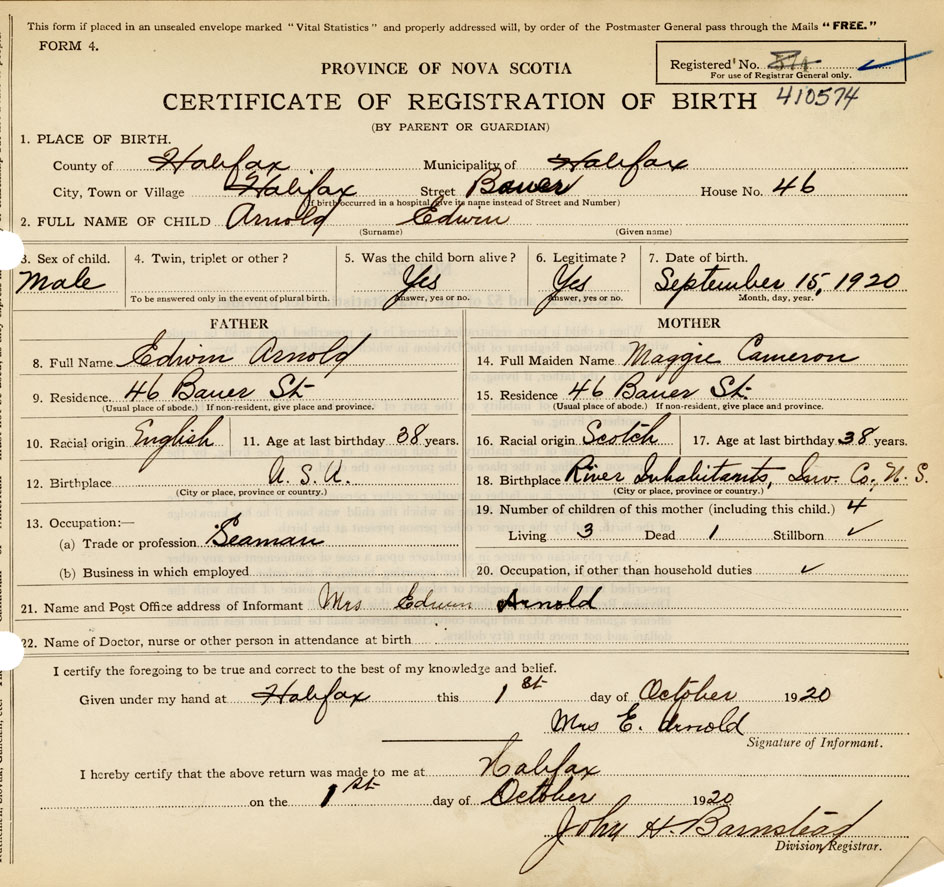 This form if placed in an unsealed envelope marked "Vital Statistics" and properly addressed will, by order of the Postmaster General pass through the Mails "FREE."
FORM 4.
Registered No. 410574
For use of Registrar General only.
PROVINCE OF NOVA SCOTIA
CERTIFICATE OF REGISTRATION OF BIRTH
(BY PARENT OR GUARDIAN)
1. PLACE OF BIRTH.
County of Halifax Municipality of Halifax
City, Town or Village Halifax Street Bauer House No. 46
(If birth occurred in a hospital, give its name instead of Street and Number)
2. FULL NAME OF CHILD Arnold Edwin
(Surname) (Given name)
3. Sex of child. Male
4. Twin, triplet or other?
To be answered only in the event of plural birth.
5. Was the child born alive? Yes
Answer, yes or no.
6. Legitimate? Yes
Answer, yes or no.
7. Date of birth.
September 15, 1920
Month, day, year.
FATHER
8. Full Name Edwin Arnold
9. Residence. 46 Bauer St.
(Usual place of abode.) If non-resident, give place and province.
10. Racial origin English 11. Age at last birthday 38 years.
12. Birthplace U. S. A.
(City or place, province or country.)
13. Occupation:—
(a) Trade or profession Seaman
(b) Business in which employed
MOTHER
14. Full Maiden Name Maggie Cameron
15. Residence. 46 Bauer St.
(Usual place of abode.) If non-resident, give place and province.
16. Racial origin Scotch 17. Age at last birthday 38 years.
18. Birthplace River Inhabitants, Inv. Co. N. S.
(City or place, province or country.)
19. Number of children of this mother (including this child.) 4
Living 3 Dead 1 Stillborn ✓
20. Occupation, if other than household duties ✓
21. Name and Post Office address of Informant Mrs Edwin Arnold
22. Name of Doctor, nurse or other person in attendance at birth
I certify the foregoing to be true and correct to the best of my knowledge and belief.
Given under my hand at Halifax this 1st day of October 1920
Mrs E. Arnold
Signature of Informant.
I hereby certify that the above return was made to me at Halifax
on the 1st day of October 1920
John H. Barnstead
Division Registrar.